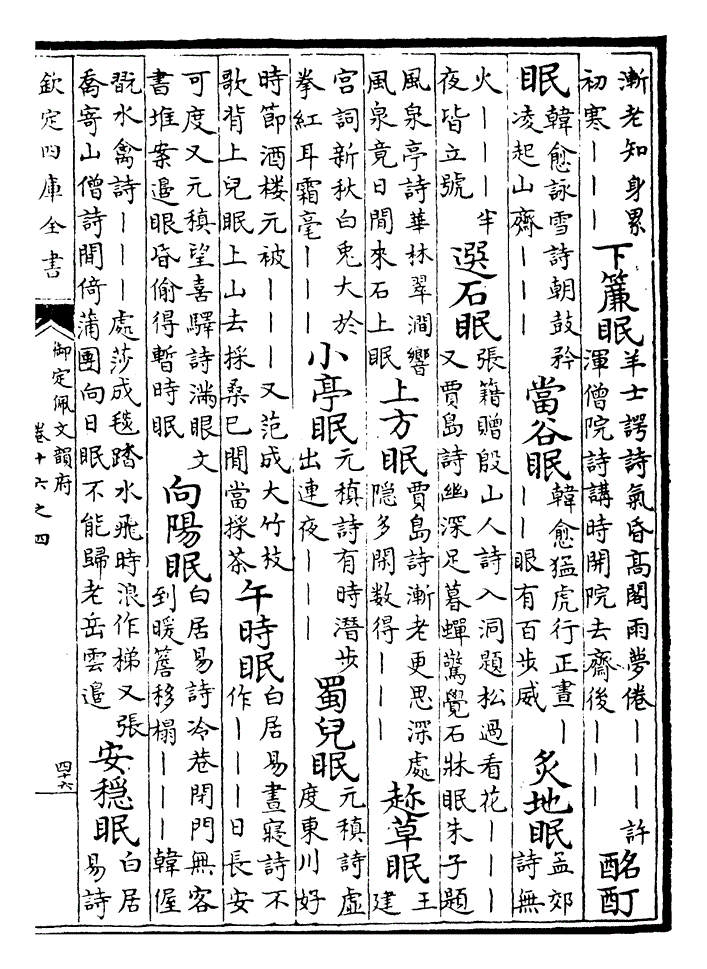 漸老知身累
初寒｜｜｜
下簾眠
羊士諤詩氣昏髙閣雨夢倦｜｜｜許
渾僧院詩講時開院去齋後｜｜｜
酩酊
眠
韓愈詠雪詩朝鼓矜
凌起山齋｜｜｜
當谷眠
韓愈猛虎行正晝｜
｜｜眼有百步威
炙地眠
孟郊
詩無
火｜｜｜半
夜皆立號
選石眠
張籍贈殷山人詩入洞題松過看花｜｜｜
又賈島詩幽深足暮蟬驚覺石牀眠朱子題
風泉亭詩華林翠澗響
風泉竟日間來石上眠
上方眠
賈島詩漸老更思深處
隠多閑数得｜｜｜
趂草眠
王
建
宮詞新秋白兎大於
拳紅耳霜毫｜｜｜
小亭眠
元稹詩有時潛步
出連夜｜｜｜
蜀兒眠
元稹詩虛
度東川好
時節酒楼元被｜｜｜又范成大竹枝
歌背上兒眠上山去採桑已閒當採茶
午時眠
白居易晝寢詩不
作｜｜｜日長安
可度又元稹望喜驛詩滿眼文
書堆案邉眼昏偷得暫時眠
向陽眠
白居易詩冷巷閉門無客
到暖簷移榻｜｜｜韓偓
翫水禽詩｜｜｜處莎成毯踏水飛時浪作梯又張
喬寄山僧詩閒倚蒲團向日眠不能歸老岳雲邉
安穏眠
白居
易詩
欽定四庫全書
御定佩文韻府
卷十六之四
四十六